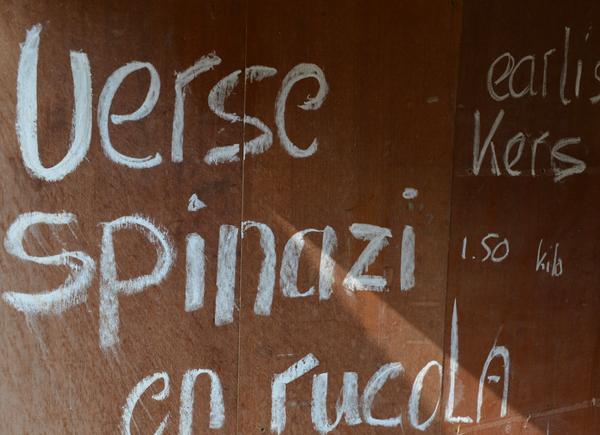 Verse
spinazi
en rucoLA
earlis
Kers
1.50 kilo